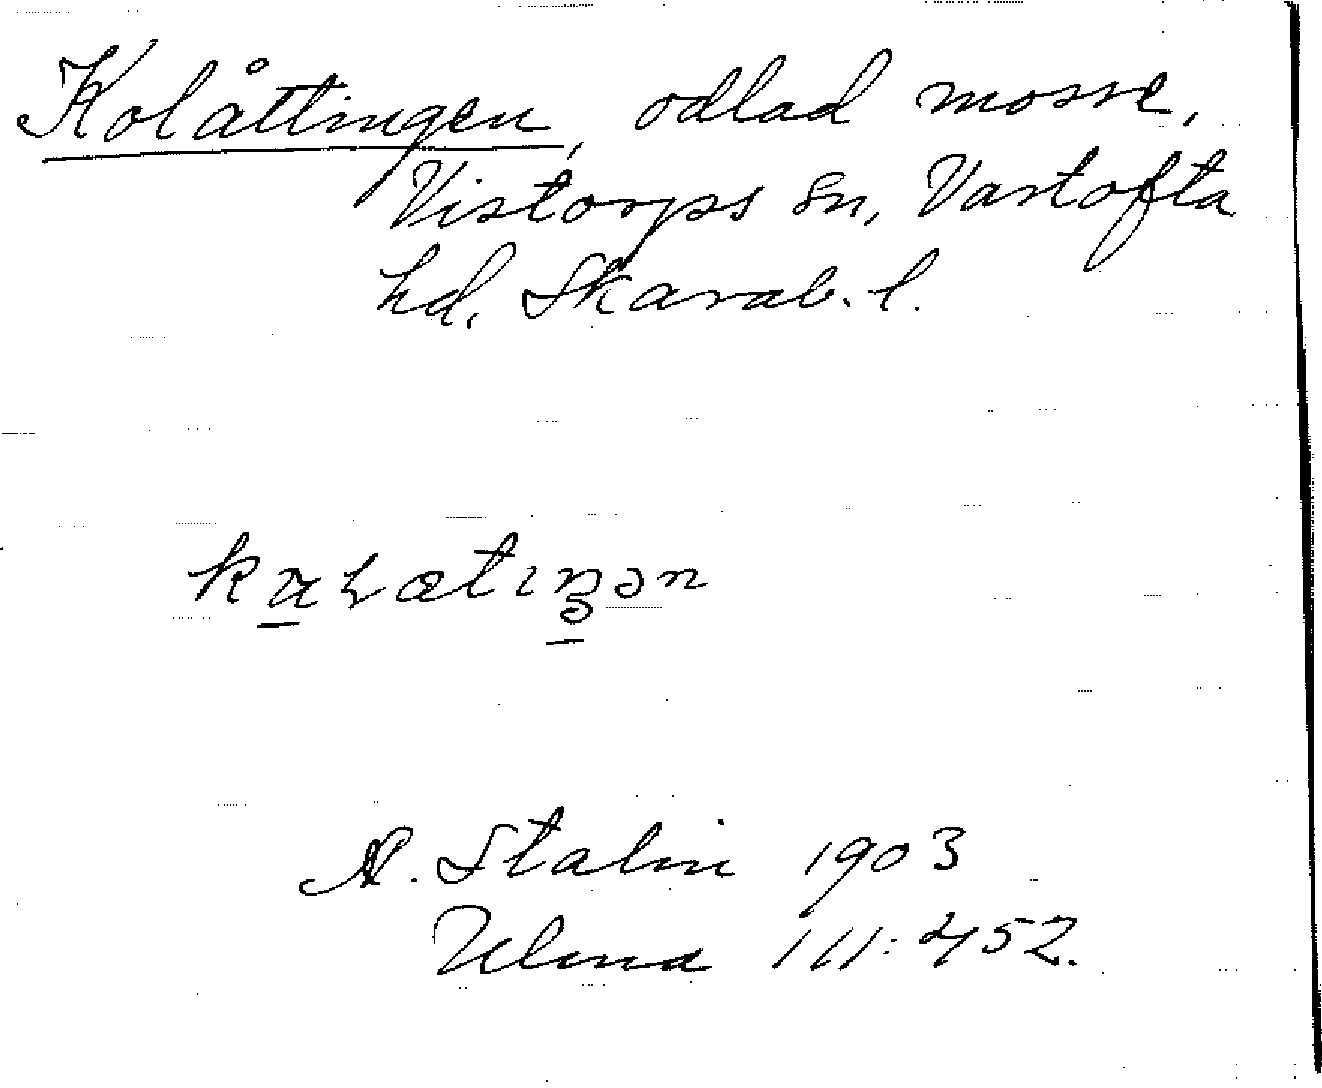 Kolåttingen, odlad mosse,
Vistorps sn, Vartofta
hd, Skarab. l.
Stalin 1903
Ulma 111:452.